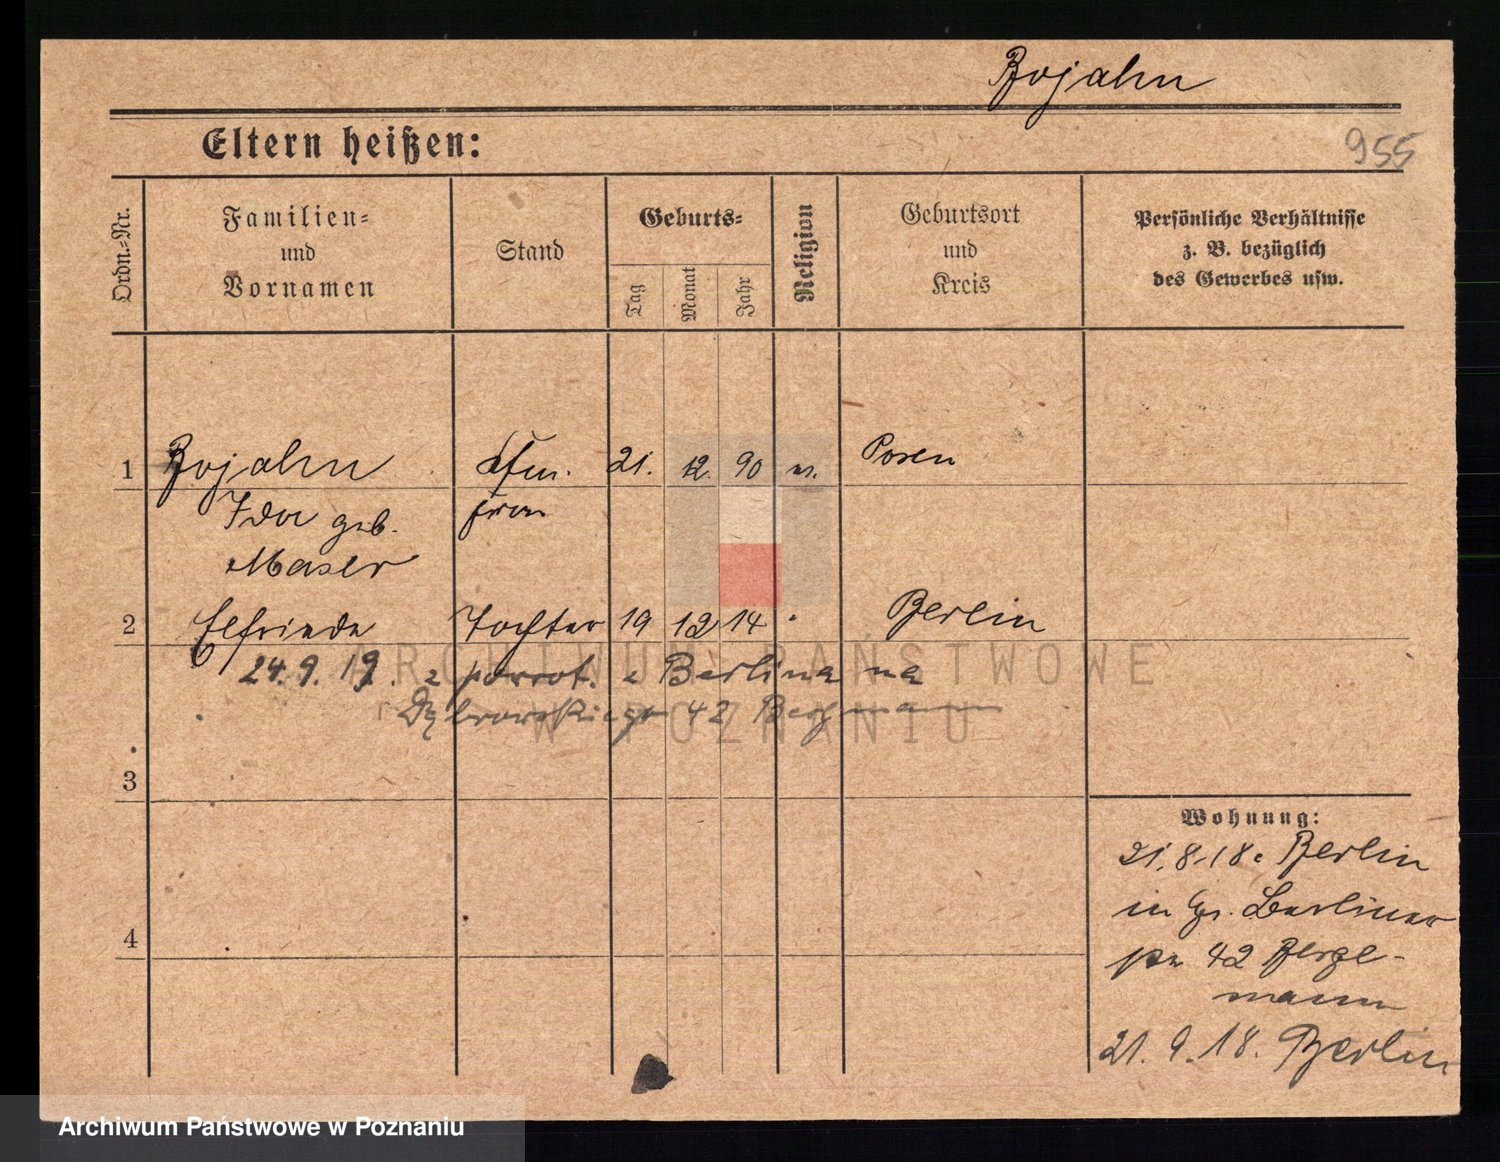 Bojahn
Eltern heißen:
955
Ordn.-Nr.
Familien-
und
Vornamen
Stand
Geburts-
Tag
Monat
Jahr
Religion
Geburtsort
und
Kreis
Persönliche Verhältnisse
z. B. bezüglich
des Gewerbes usw.
1 Bojahn Kfm. 21. 12. 90 Posen
Ida geb. frau
Maser
2 Elfriede Tochter 19 12 14 " Berlin
24.9.19. z powrot. z Berlina na
Dąbrowskiego 42 Bergmann
3
4
Wohnung:
21.8.18. Berlin
in Gr. Berliner
42 Berge-
mann
21.9.18. Berlin
ARCHIWUM PAŃSTWOWE
W POZNANIU
Archiwum Państwowe w Poznaniu